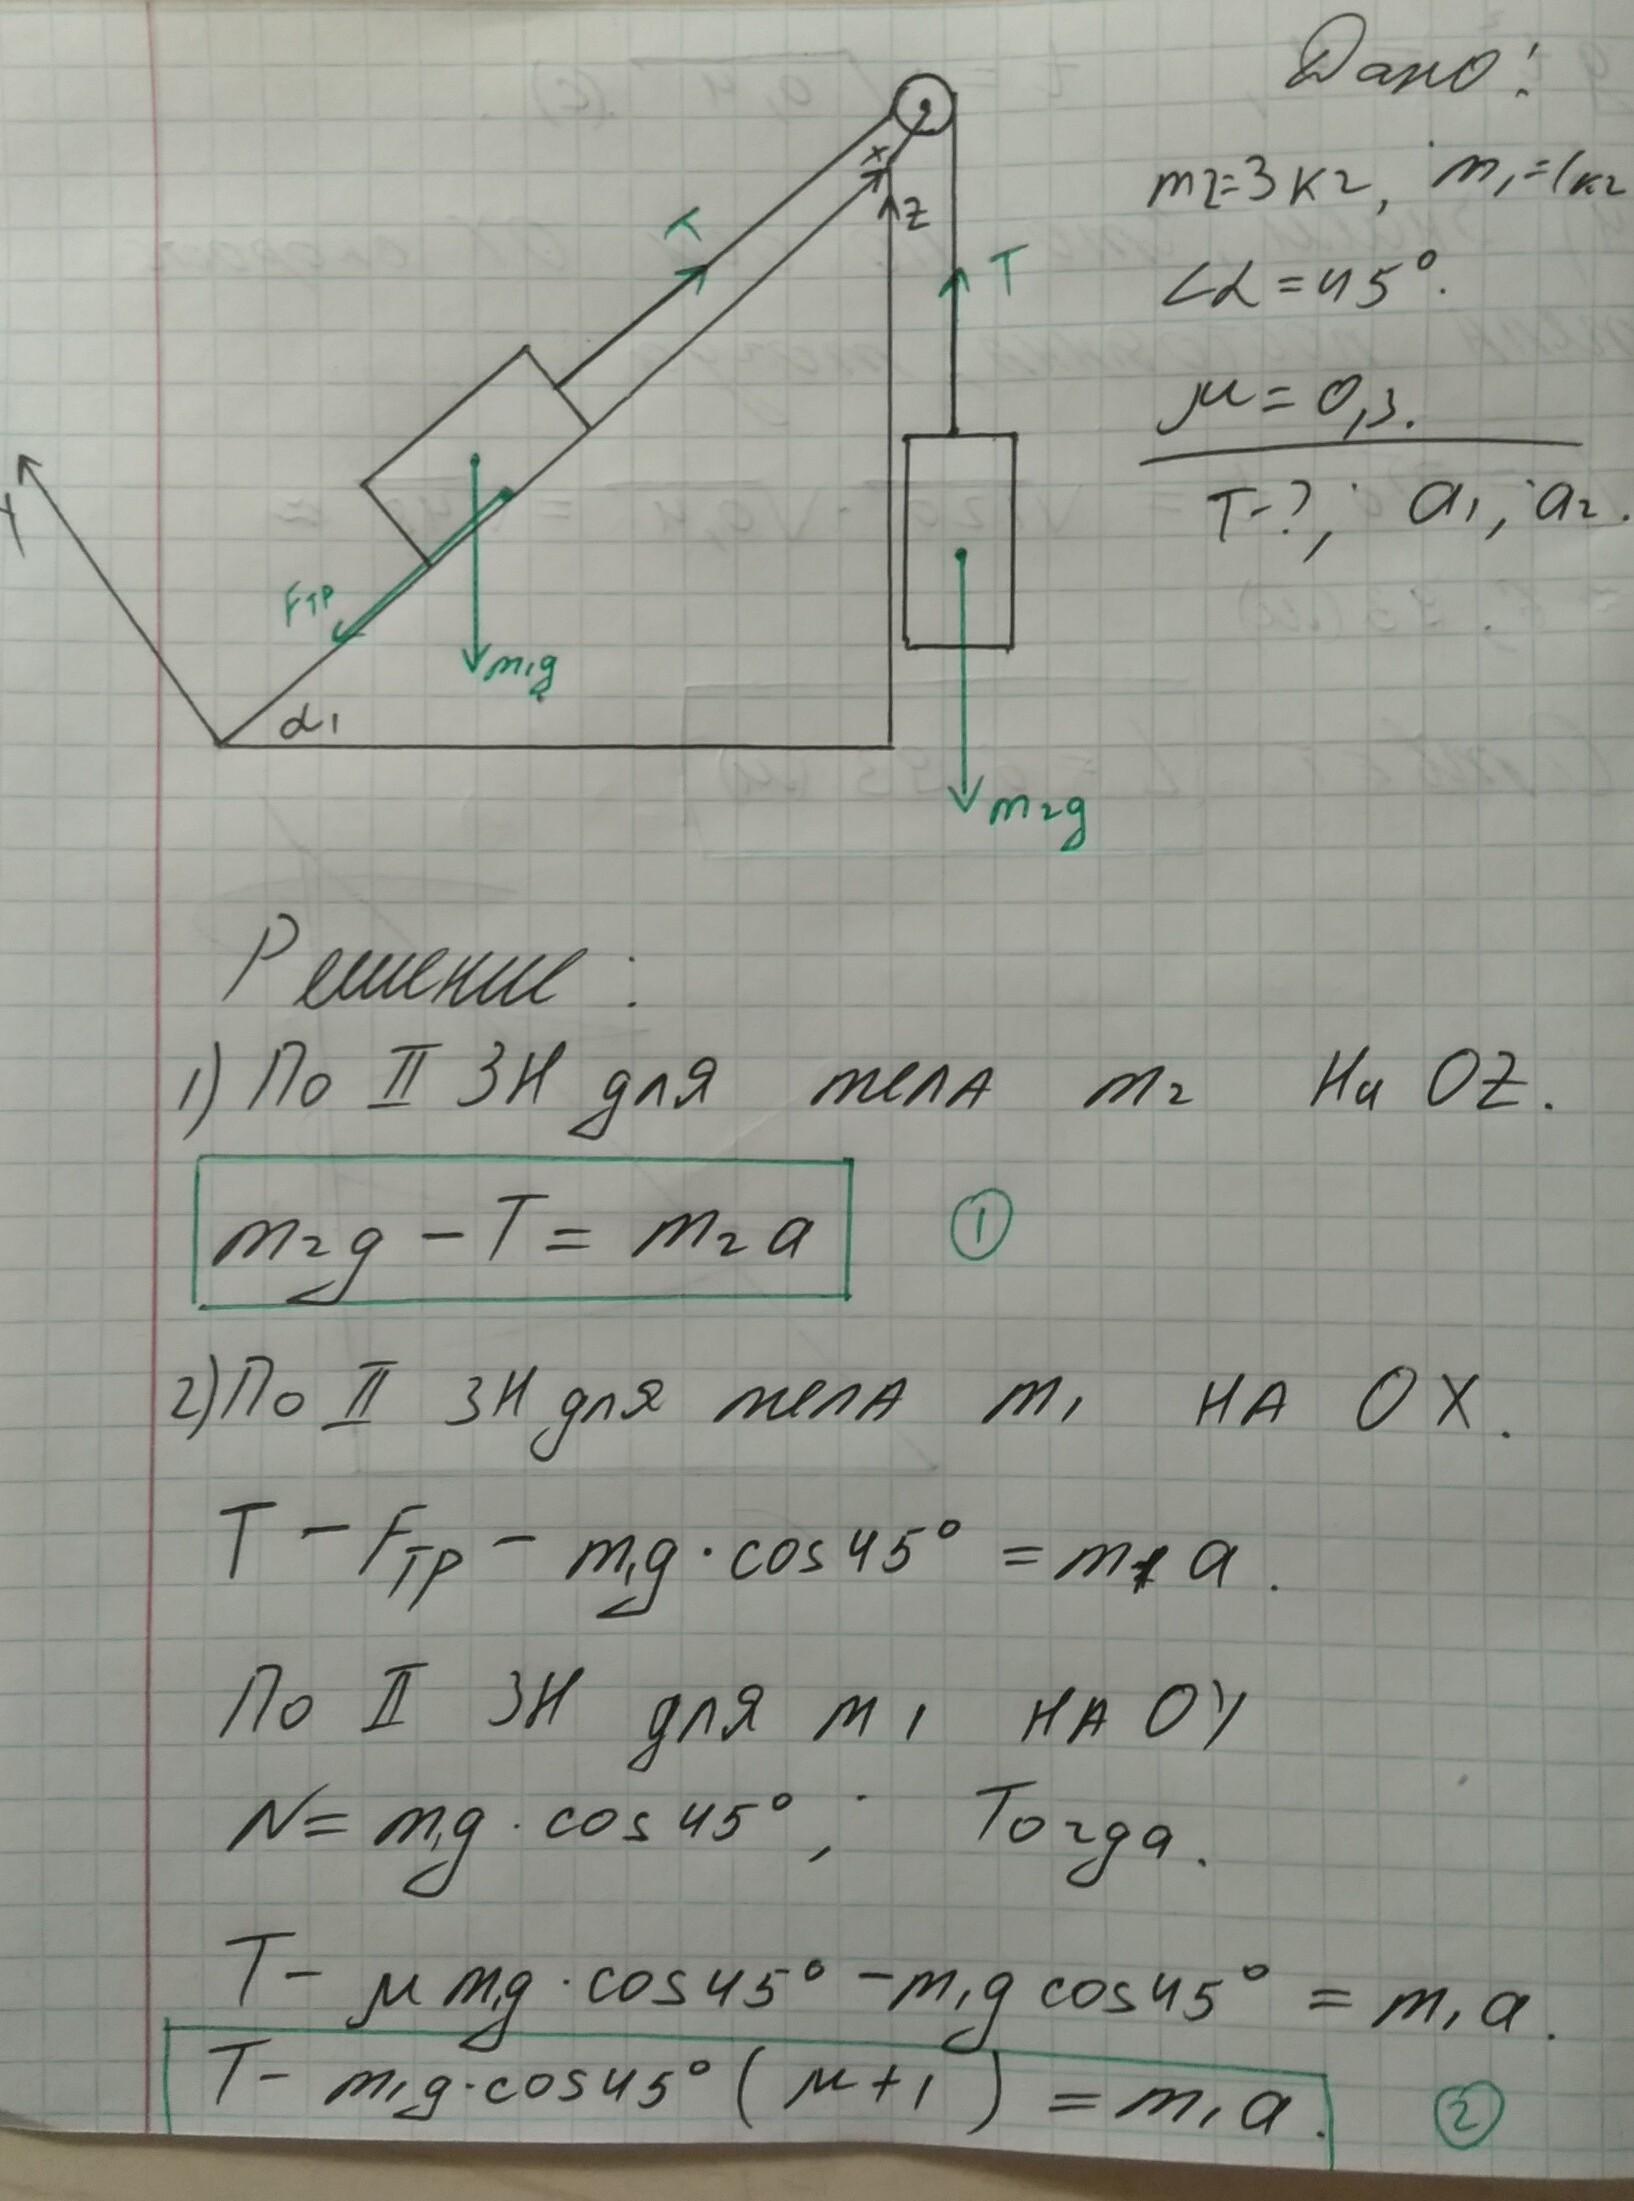 Дано:
m2=3 кг, m1=1кг
∠α=45°.
μ=0,3.
T-?; a1; a2.
T
T
x
z
y
Fтр
m1g
m2g
α1
Решение:
1) По II ЗН для тела m2 на OZ.
m2g - T = m2a ①
2) По II ЗН для тела m1 на OX.
T - Fтр - m1g · cos45° = m1a.
По II ЗН для m1 на OY
N = m1g · cos45°; Тогда.
T - μ m1g · cos45° - m1g cos45° = m1a.
T - m1g · cos45° (μ+1) = m1a. ②